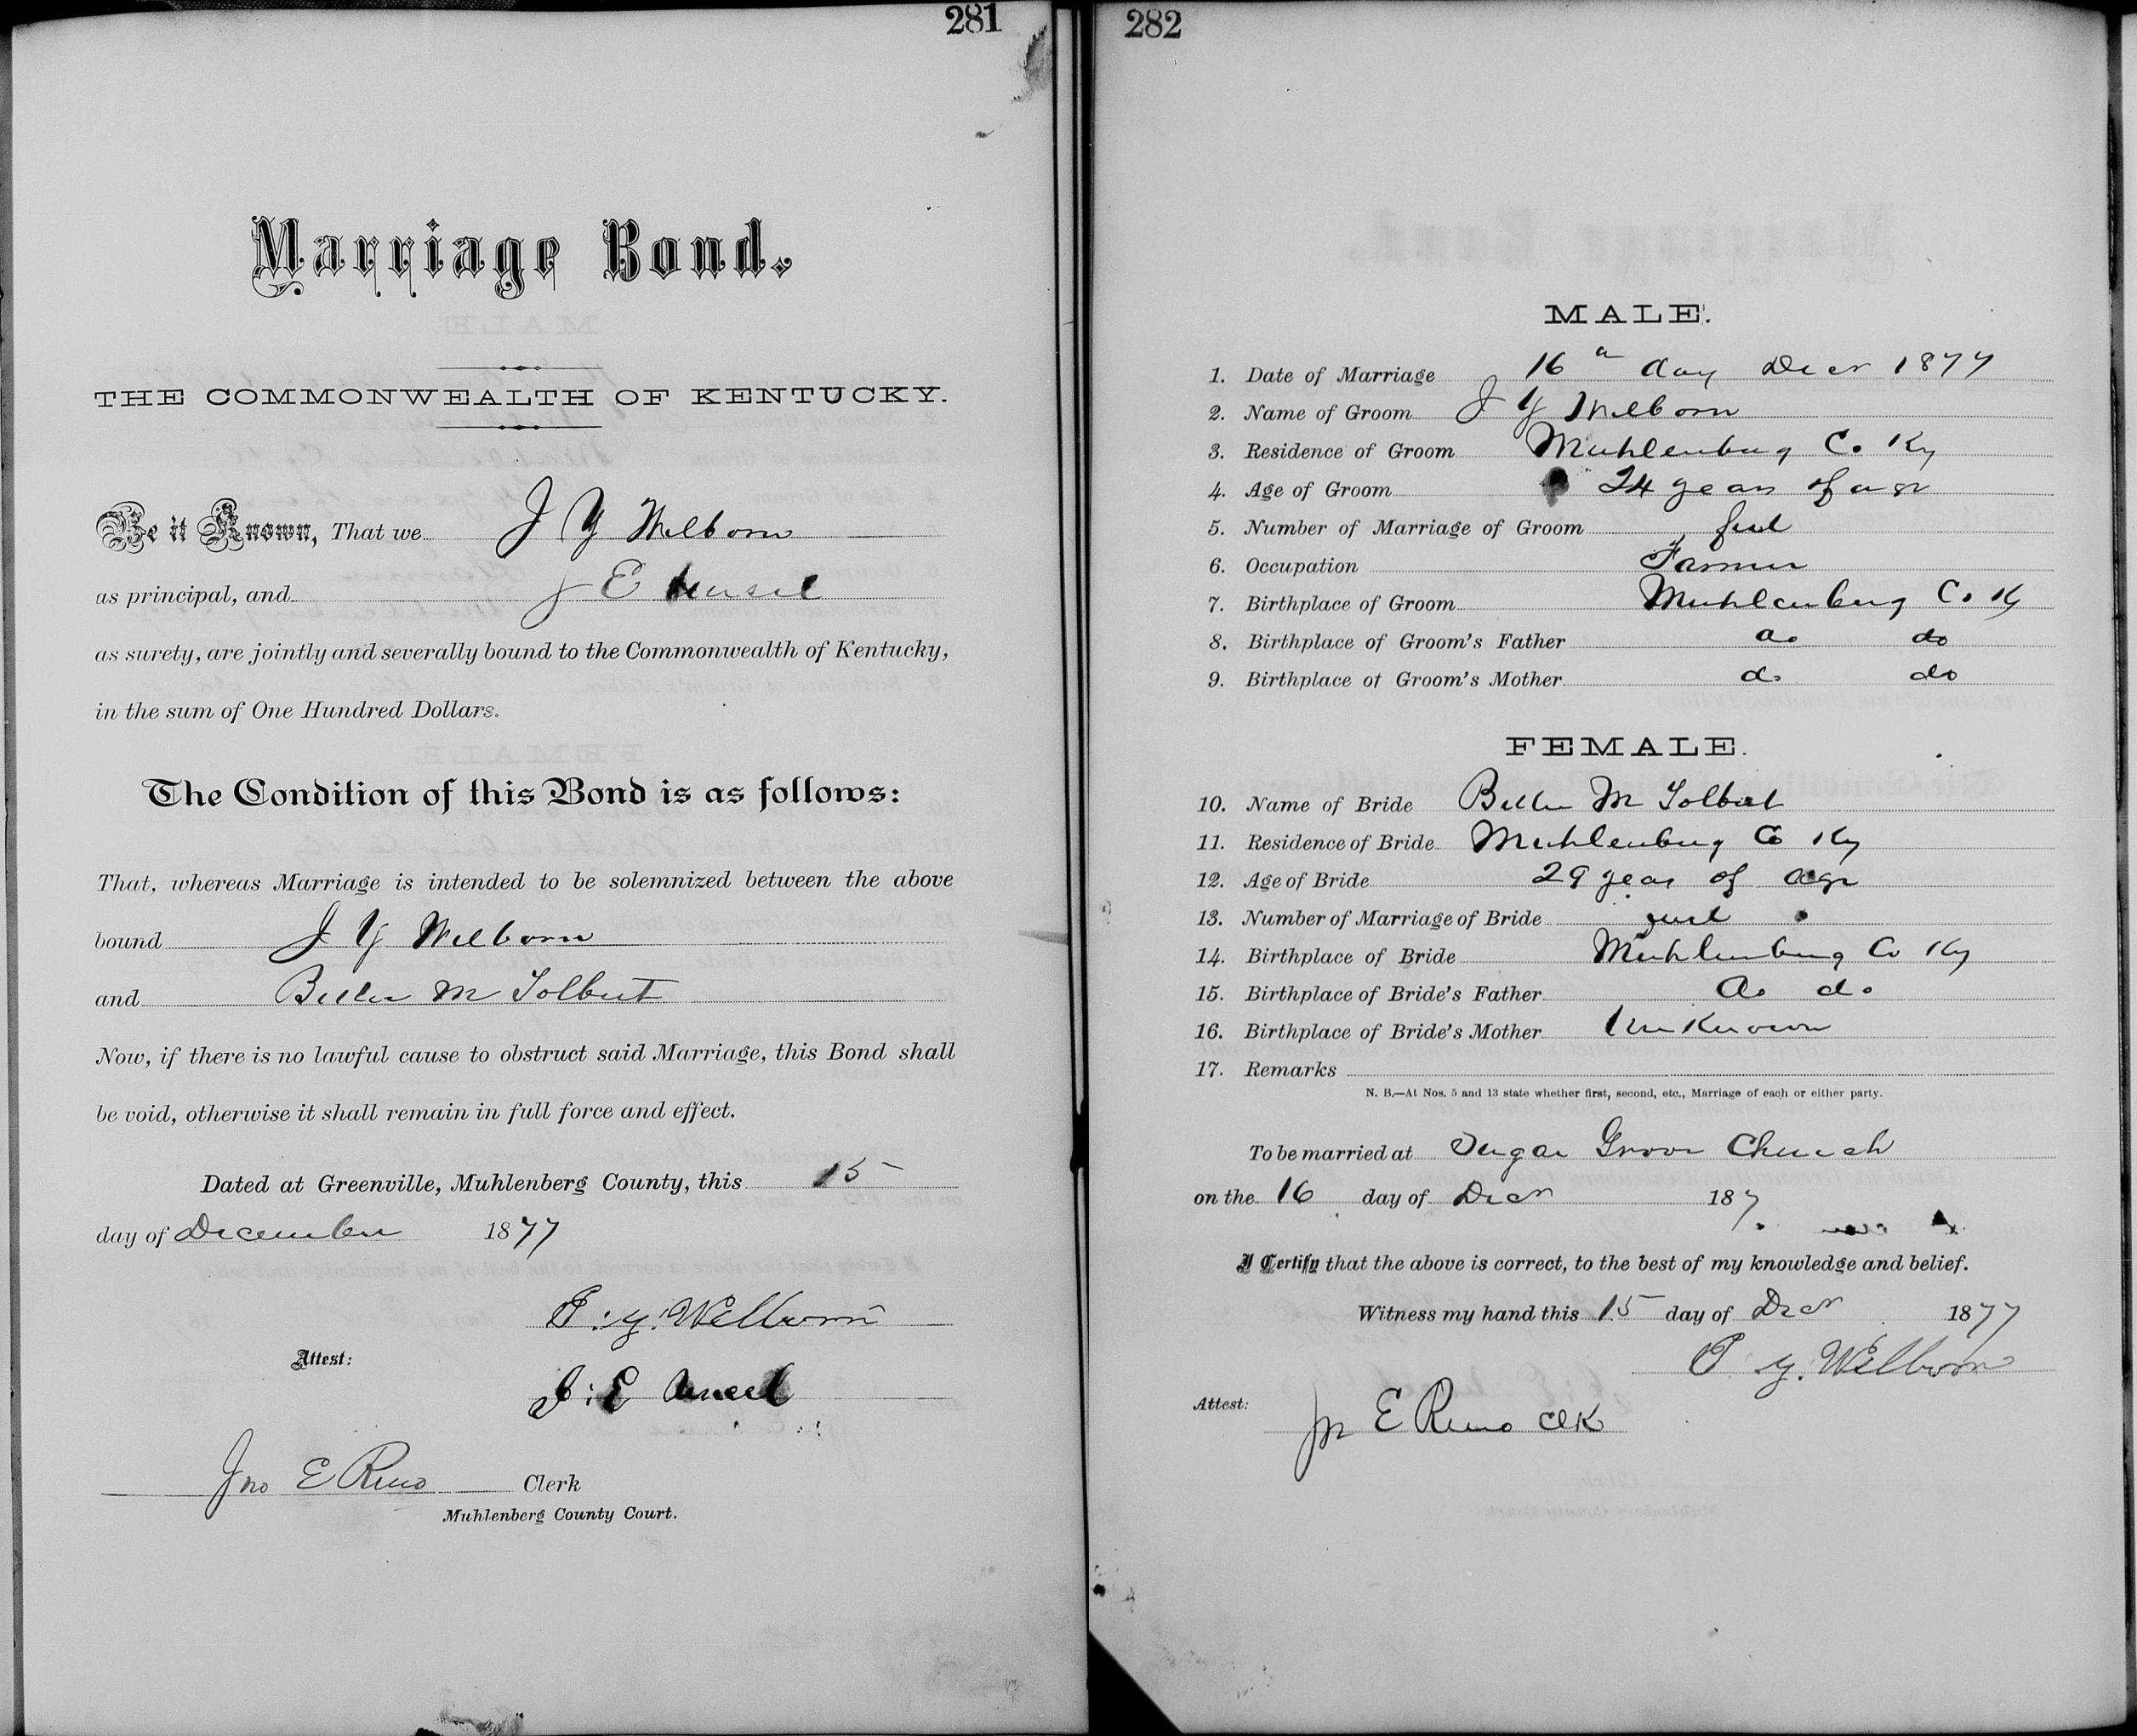 281
Marriage Bond.
THE COMMONWEALTH OF KENTUCKY.
Be it Known, That we J Y Welborn
as principal, and J E
as surety, are jointly and severally bound to the Commonwealth of Kentucky,
in the sum of One Hundred Dollars.
The Condition of this Bond is as follows:
That, whereas Marriage is intended to be solemnized between the above
bound J Y Welborn
and M Tolbert
Now, if there is no lawful cause to obstruct said Marriage, this Bond shall
be void, otherwise it shall remain in full force and effect.
Dated at Greenville, Muhlenberg County, this 15
day of December 1877
J. Y. Welborn
Attest:
J. E
Jno E Reno Clerk
Muhlenberg County Court.
282
MALE.
1. Date of Marriage 16 day Decr 1877
2. Name of Groom J Y Welborn
3. Residence of Groom Muhlenburg Co. Ky
4. Age of Groom 24 years of age
5. Number of Marriage of Groom first
6. Occupation Farmer
7. Birthplace of Groom Muhlenburg Co. Ky
8. Birthplace of Groom's Father do do
9. Birthplace of Groom's Mother do do
FEMALE.
10. Name of Bride M Tolbert
11. Residence of Bride Muhlenburg Co Ky
12. Age of Bride 29 years of age
13. Number of Marriage of Bride first
14. Birthplace of Bride Muhlenburg Co Ky
15. Birthplace of Bride's Father do do
16. Birthplace of Bride's Mother Unknown
17. Remarks
N. B.—At Nos. 5 and 13 state whether first, second, etc., Marriage of each or either party.
To be married at Sugar Grove Church
on the 16 day of Decr 187
I Certify that the above is correct, to the best of my knowledge and belief.
Witness my hand this 15 day of Decr 1877
J Y. Welborn
Attest:
Jno E Reno Clk